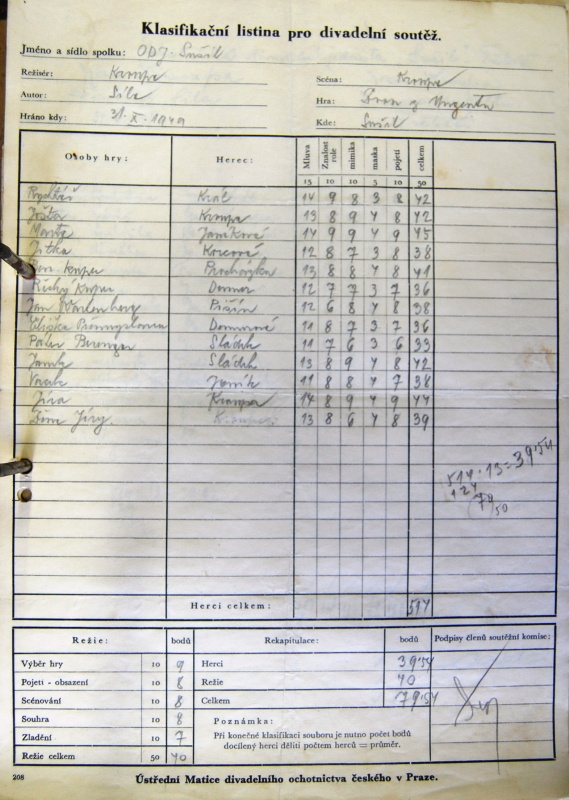 Klasifikační listina pro divadelní soutěž.
Jméno a sídlo spolku: ODJ. Sušil
Režisér: Krompa
Scéna: Krompa
Autor: Síla
Hra:
Hráno kdy: 31. X. 1949
Kde: Sušil
Osoby hry: Herec: Mluva Znalost role mimika maska pojetí celkem
15 10 10 5 10 50
Rychtář Král 14 9 8 3 8 42
Jošta Krompa 13 8 9 4 8 42
Marta Janíková 14 9 9 4 9 45
Jitka 12 8 7 3 8 38
Procházka 13 8 8 4 8 41
12 7 7 3 7 36
Jan 12 6 8 4 8 38
11 8 7 3 7 36
Páter Sládek 11 7 6 3 6 33
Janek Sládek 13 8 9 4 8 42
Vacek Janík 11 8 8 4 7 38
Jíra Krompa 14 8 9 4 9 44
Jíry. 13 8 6 4 8 39
514 : 13 = 39'54
124
79
50
Herci celkem: 514
Režie: bodů Rekapitulace: bodů Podpisy členů soutěžní komise:
Výběr hry 10 9 Herci 39'54
Pojetí - obsazení 10 8 Režie 40
Scénování 10 8 Celkem 79'54
Souhra 10 8 Poznámka:
Zladění 10 7 Při konečné klasifikaci souboru je nutno počet bodů
Režie celkem 50 40 docílený herci děliti počtem herců = průměr.
208 Ústřední Matice divadelního ochotnictva českého v Praze.